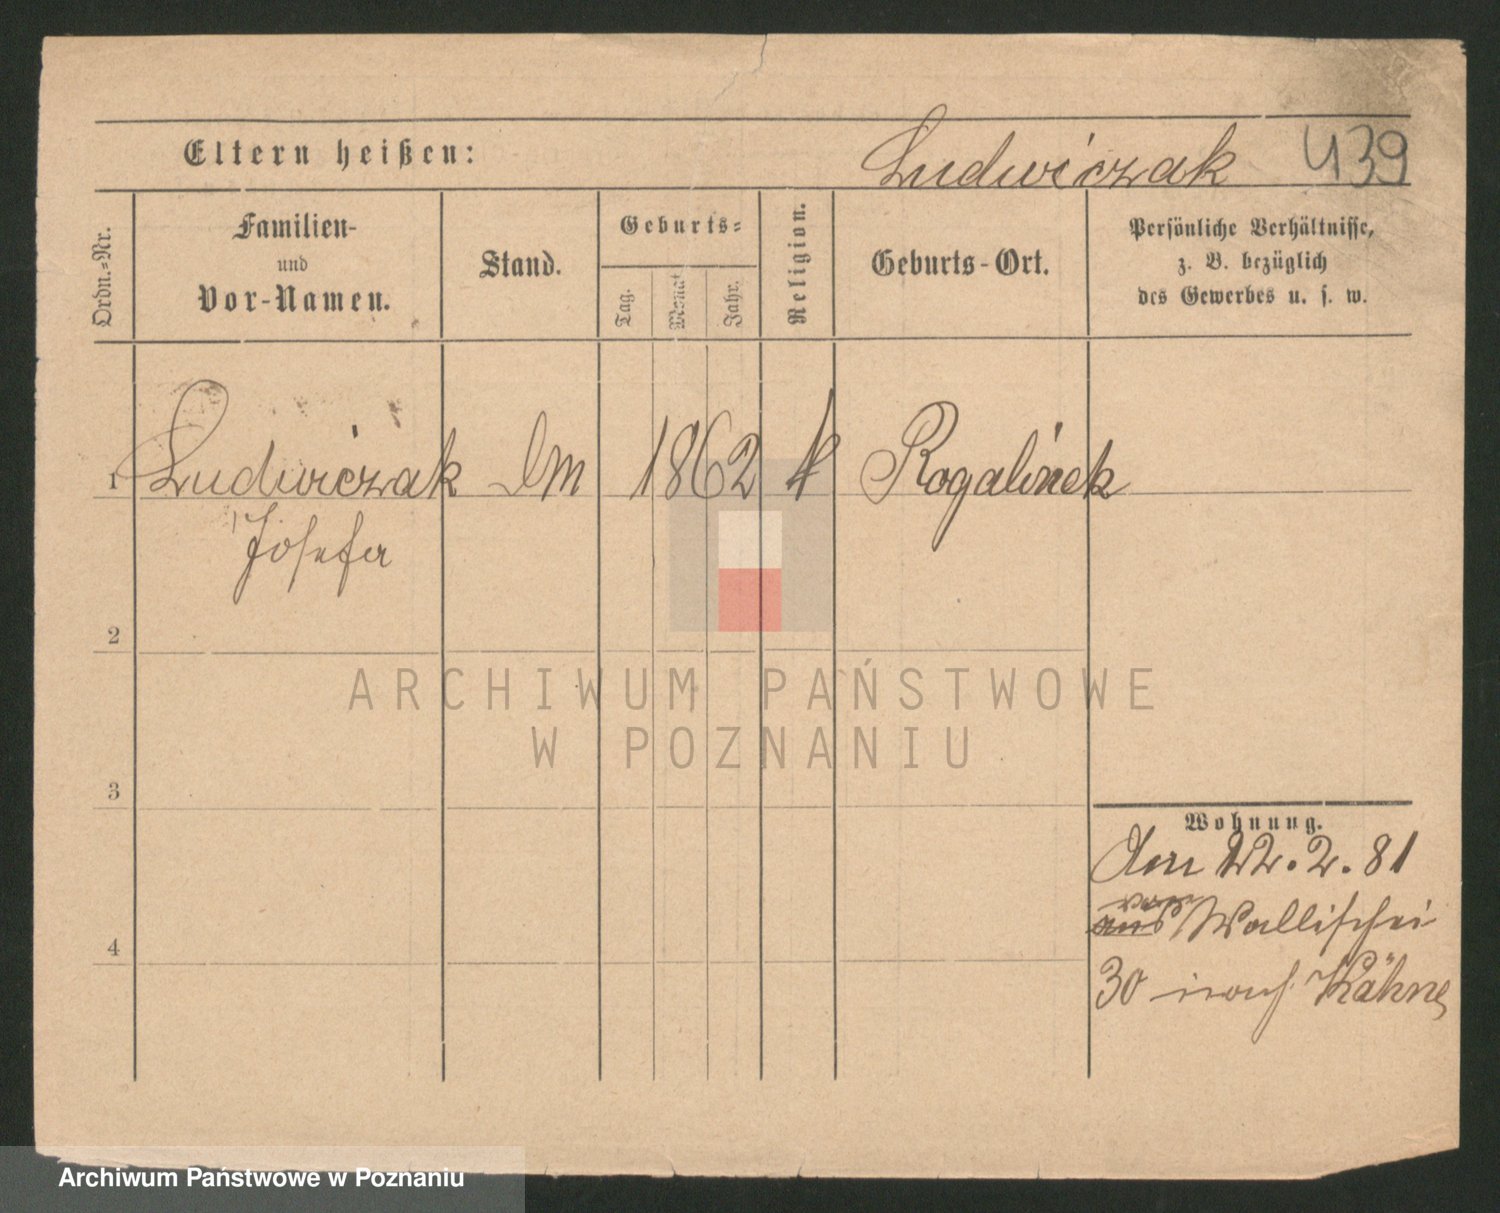 Eltern heißen:
Ludwiczak 439
Ordn.-Nr.
Familien-
und
Vor-Namen.
Stand.
Geburts-
Tag.
Monat
Jahr.
Religion.
Geburts-Ort.
Persönliche Verhältnisse,
z. B. bezüglich
des Gewerbes u. s. w.
1 Ludwiczak Dm 1862 k Rogalinek
Josefa
2
ARCHIWUM PAŃSTWOWE
W POZNANIU
3
Wohnung.
den 22. 2. 81
von
aus Wallischei
30 nach Kähne
4
Archiwum Państwowe w Poznaniu